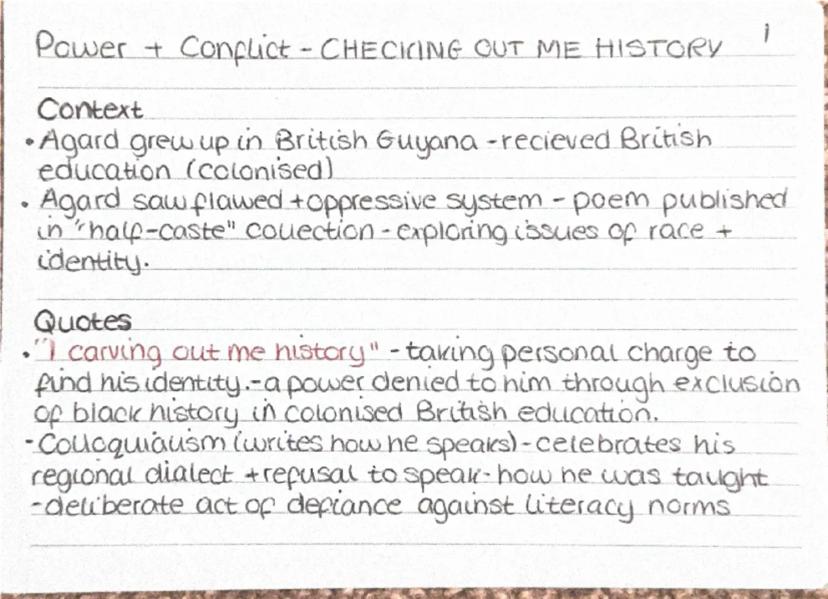 Power + Conflict - CHECKING OUT ME HISTORY 1
Context
• Agard grew up in British Guyana - recieved British
education (colonised)
• Agard saw flawed + oppressive system - poem published
in "half-caste" collection - exploring issues of race +
identity.
Quotes
• "I carving out me history" - taking personal charge to
find his identity. - a power denied to him through exclusion
of black history in colonised British education.
- Colloquialism (writes how he speaks) - celebrates his
regional dialect + refusal to speak - how he was taught
- deliberate act of defiance against literacy norms